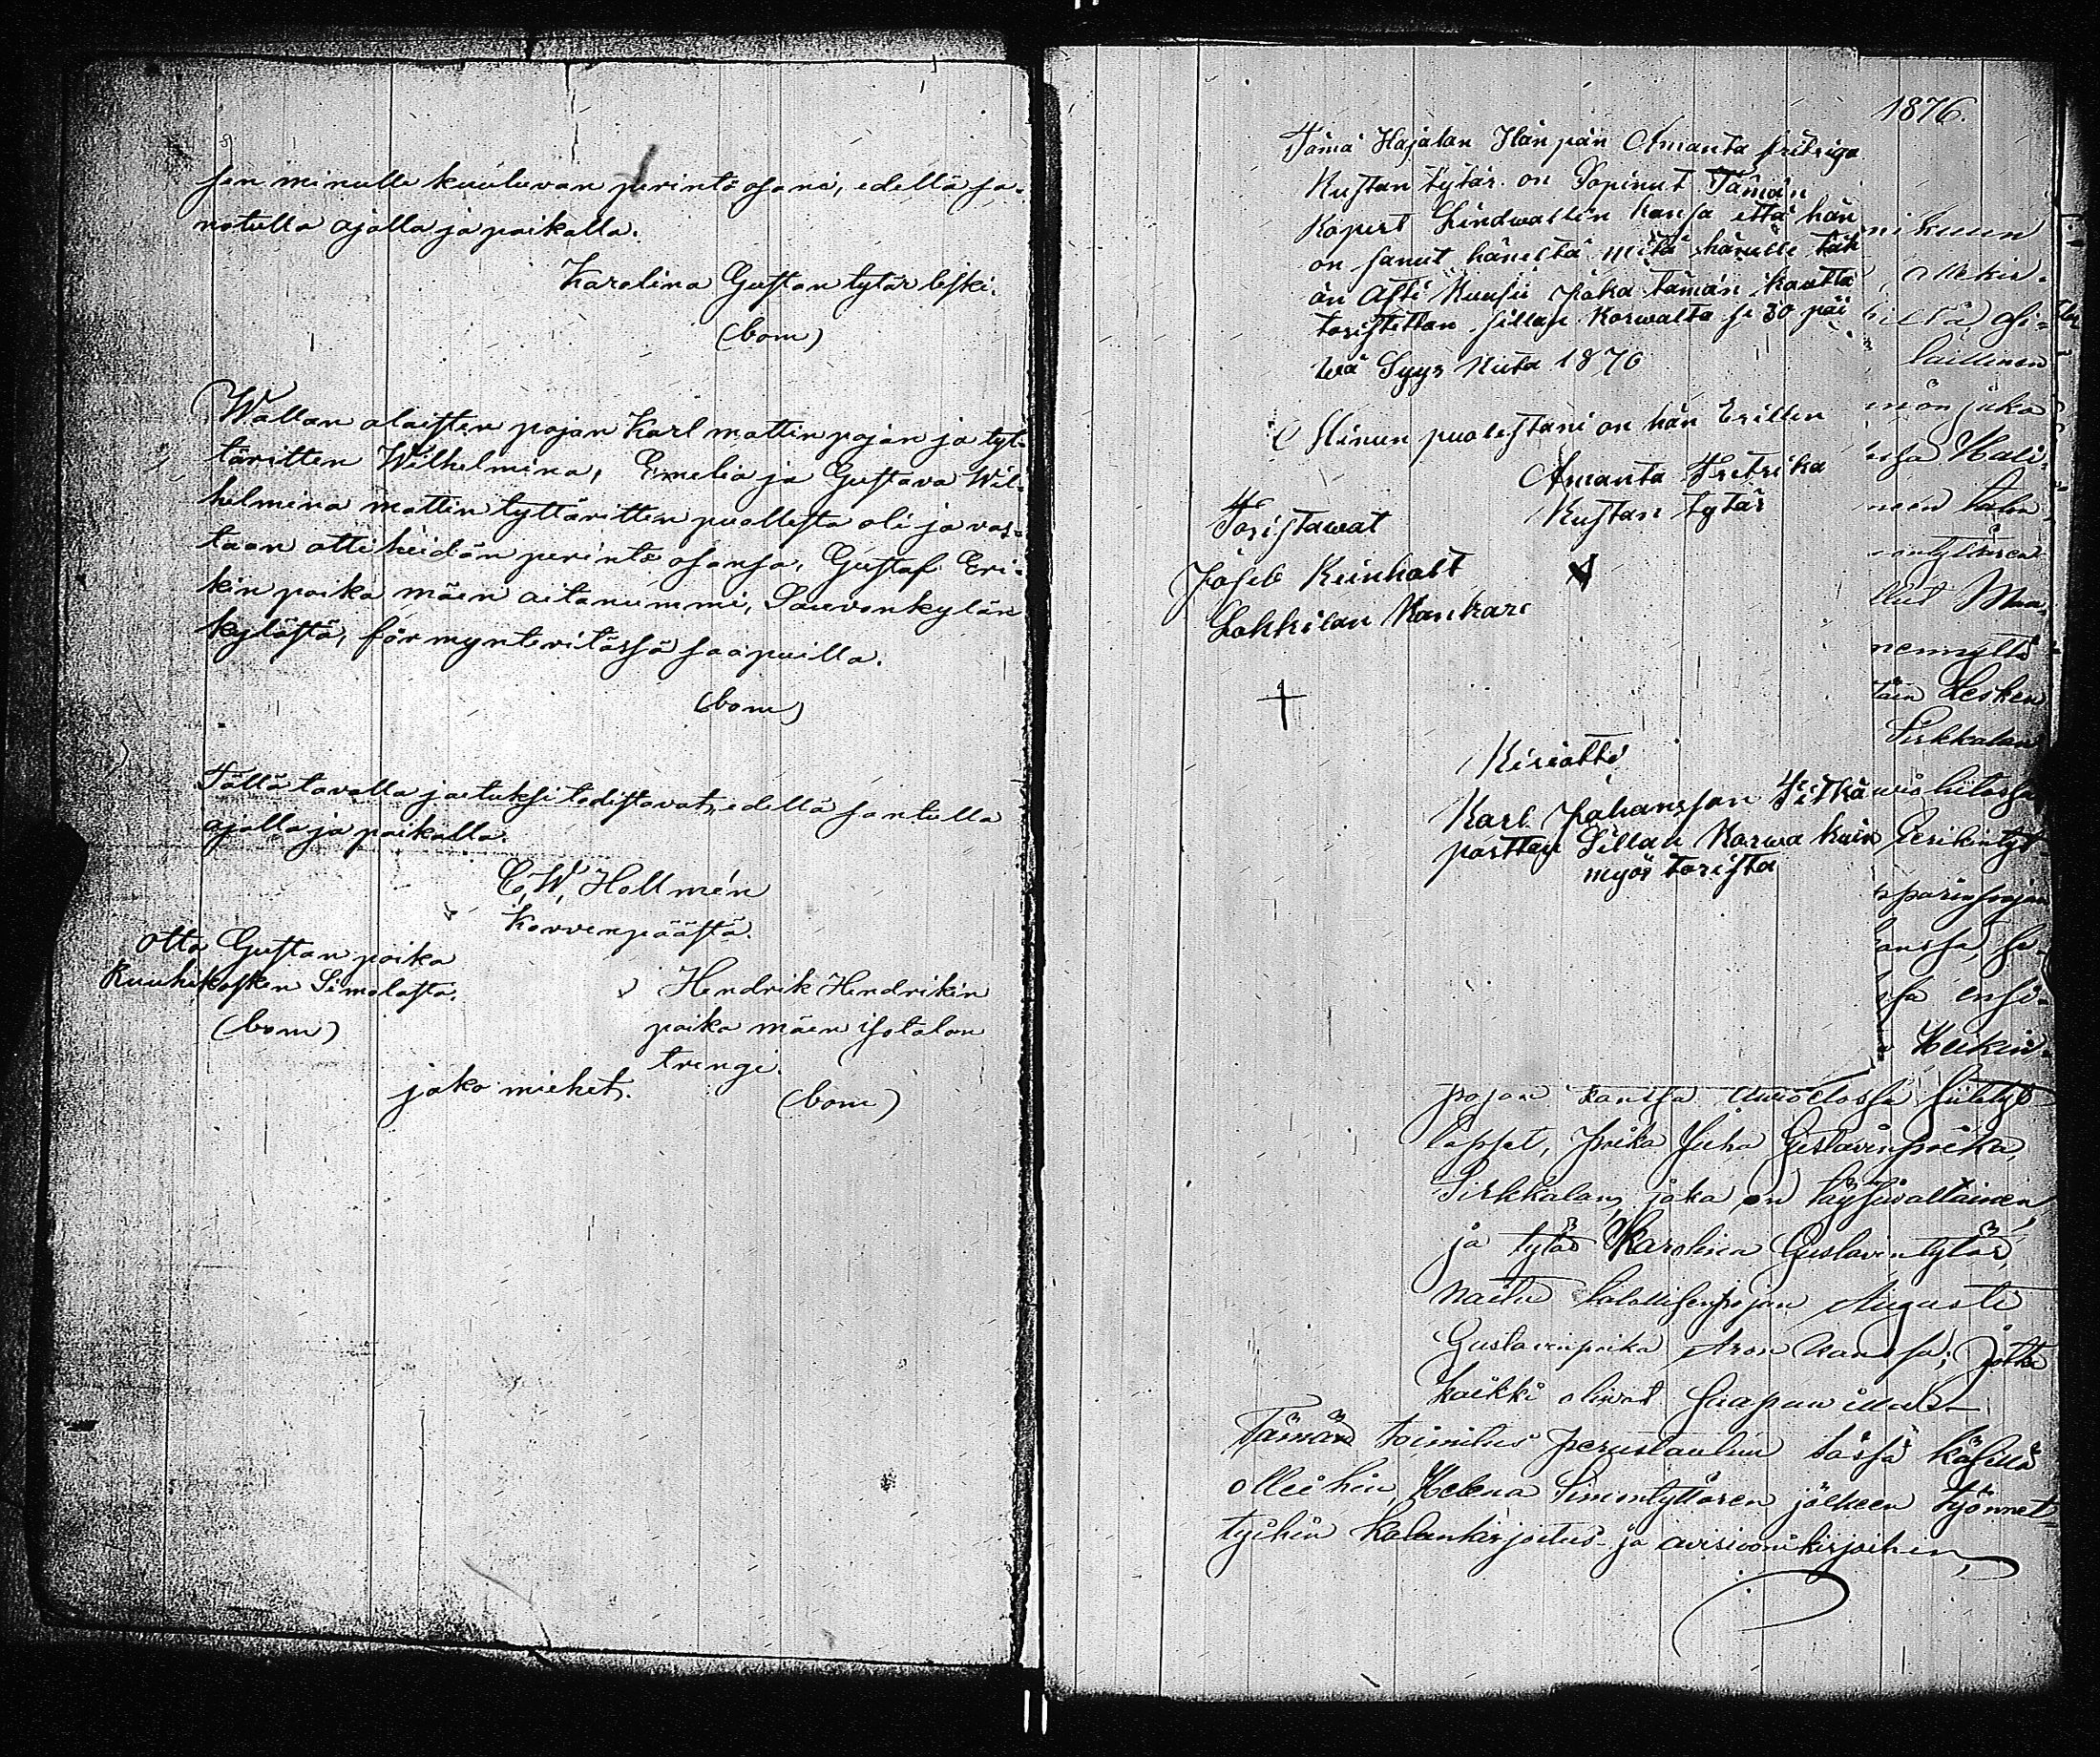 sen minulle kuuluvan perintö osani, edellä sa-
notulla ajalla ja paikalla.
Karolina Gustan tytär leski.
(bom)
Wallan alaisten pojan Karl mattin pojan ja tyt-
täritten Wilhelmina, Emelia ja Gustava Wil-
helmina mattin tyttäritten puollesta oli ja vas-
taan otti heidän perintö osansa, Gustaf Eri-
kin poika mäen aitanummi, Sauvonkylän
kylästä, förmynteritässä saapuilla.
(bom)
Tällä tavalla jaetuksi todistavat, edellä santulla
ajalla ja paikalla.
C, W, Hollmén
Korvenpäästä.
Otto Gustan poika
Ruuhikosken Simolasta.
(bom)
Hendrik Hendrikin
poika mäen isotalon
trengi.
(bom)
jako miehet.
1876.
Tämä Hajalan Ilän pän Amanta fritriga
Kustan tytär on Sopinut Tämän
Kopert Lindwallin Kansa että hän
on sanut häneltä mitä hänelle täh
än Asti Kuusii Joka tämän kautta
toristettan sillan Korwalta se 30 päi
wä Syys Kuta 1876
Minun puolestani on hän Erillen
Amanta Fretrika
Kustan tytär
Toristawat
Joseb Reinholt
Lokkilan Kankari
Kirioitti
Karl Johansson Pitkä
porttan Sillan Korwa kuin
myös torista
nikuun
laillinen
joka
nennyltä
täin Lesken
Sirkkalan
Heikin-
pojan kanssa awiotossa siitetyt
lapset, Poika Juha Gustavinpoika,
Sirkkalan, joka on täysiwaltainen,
ja tytär Karolina Gustavintytär,
naitu talollisenpojan Augusti
Gustavinpoika Aron kanssa; Jotka
kaikki oliwat Saapuwilla.
Tämän toimitus perustauttuu tässä käsillä
olleihin Helena Simontyttären jälkeen työnnet-
tyihin kalunkirjoitus- ja avisioonikirjoihin,